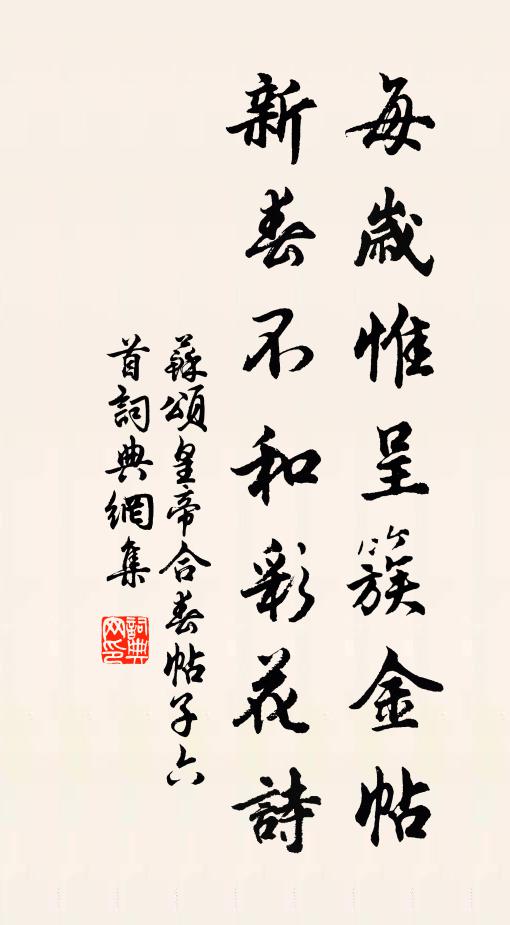 每歲惟呈簇金帖
新春不和彩花詩
蘇頌皇帝合春帖子六
首詞典網集
詞典网印